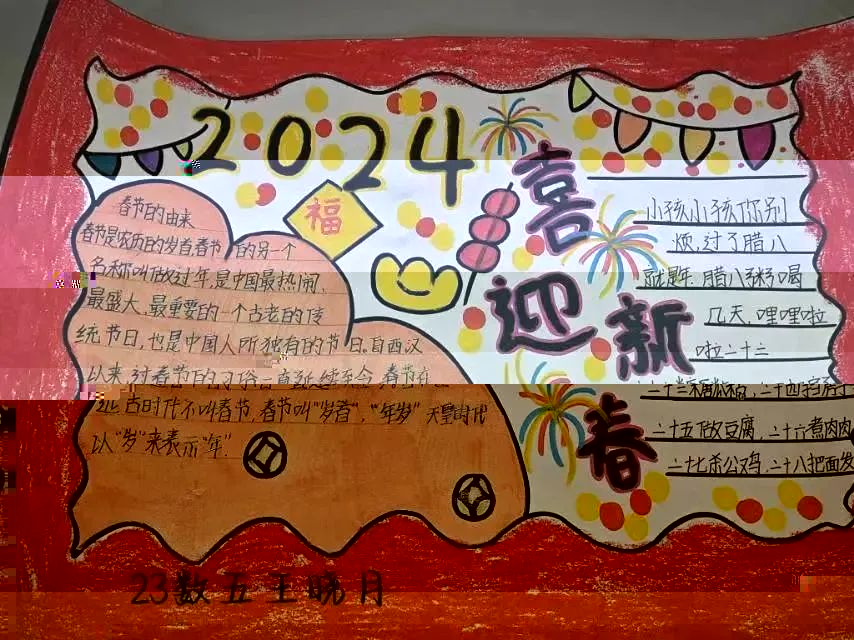 2024
福
喜迎新春
春节的由来
春节是农历的岁首,春节的另一个
名称叫做过年,是中国最热闹、
最盛大、最重要的一个古老的传
统节日,也是中国人所独有的节日.自西汉
以来,对春节的习俗一直延续至今,春节在
远古时代不叫春节,春节叫"岁首","年岁"天皇时代
以"岁"来表示"年".
小孩小孩你别
烦,过了腊八
就是年.腊八粥喝
几天,哩哩啦
啦二十三
二十五做豆腐,二十六煮肉肉
二十七杀公鸡,二十八把面发
23数五王晓月